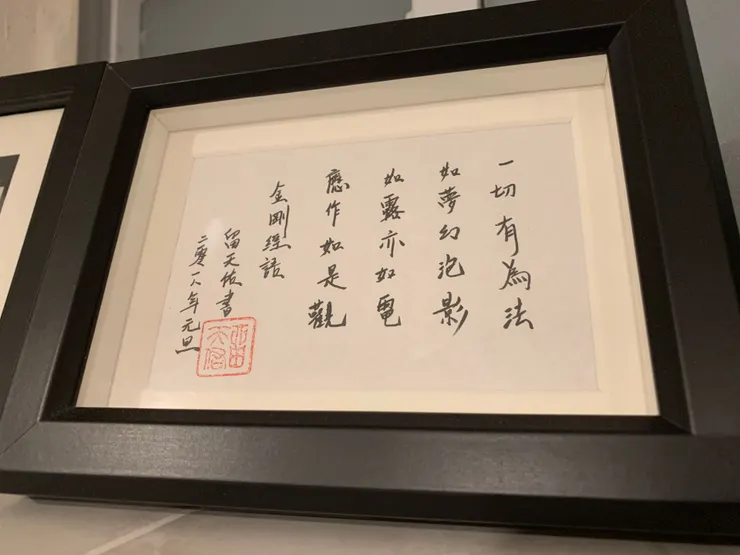 一切有為法
如夢幻泡影
如露亦如電
應作如是觀
金剛經語
留天佑書
二零一八年元旦